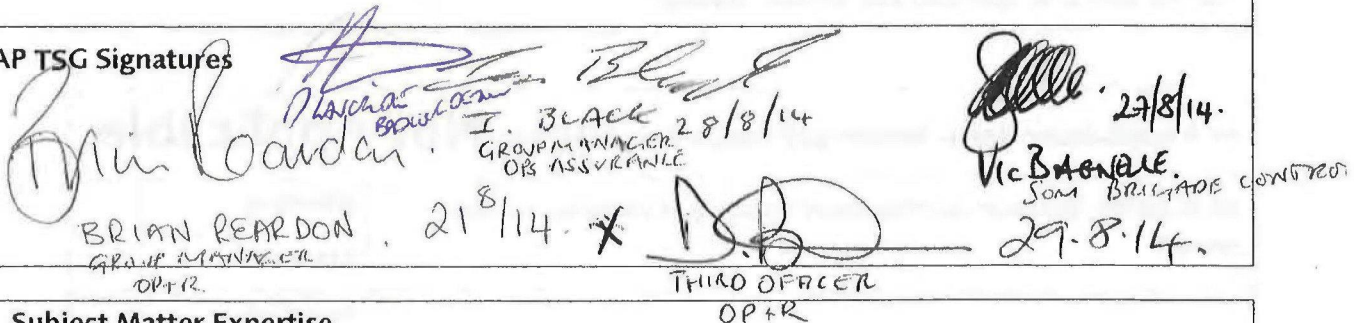 AP TSG Signatures
I. BLACK 28/8/14
GROUP MANAGER
OPS ASSURANCE
27/8/14.
Vic BAGNELLE.
SOM BRIGADE CONTROL
BRIAN REARDON. 21 8/14.
GROUP MANAGER
OP+R.
X
29.8.14.
THIRD OFFICER
OP+R
Subject Matter Expertise